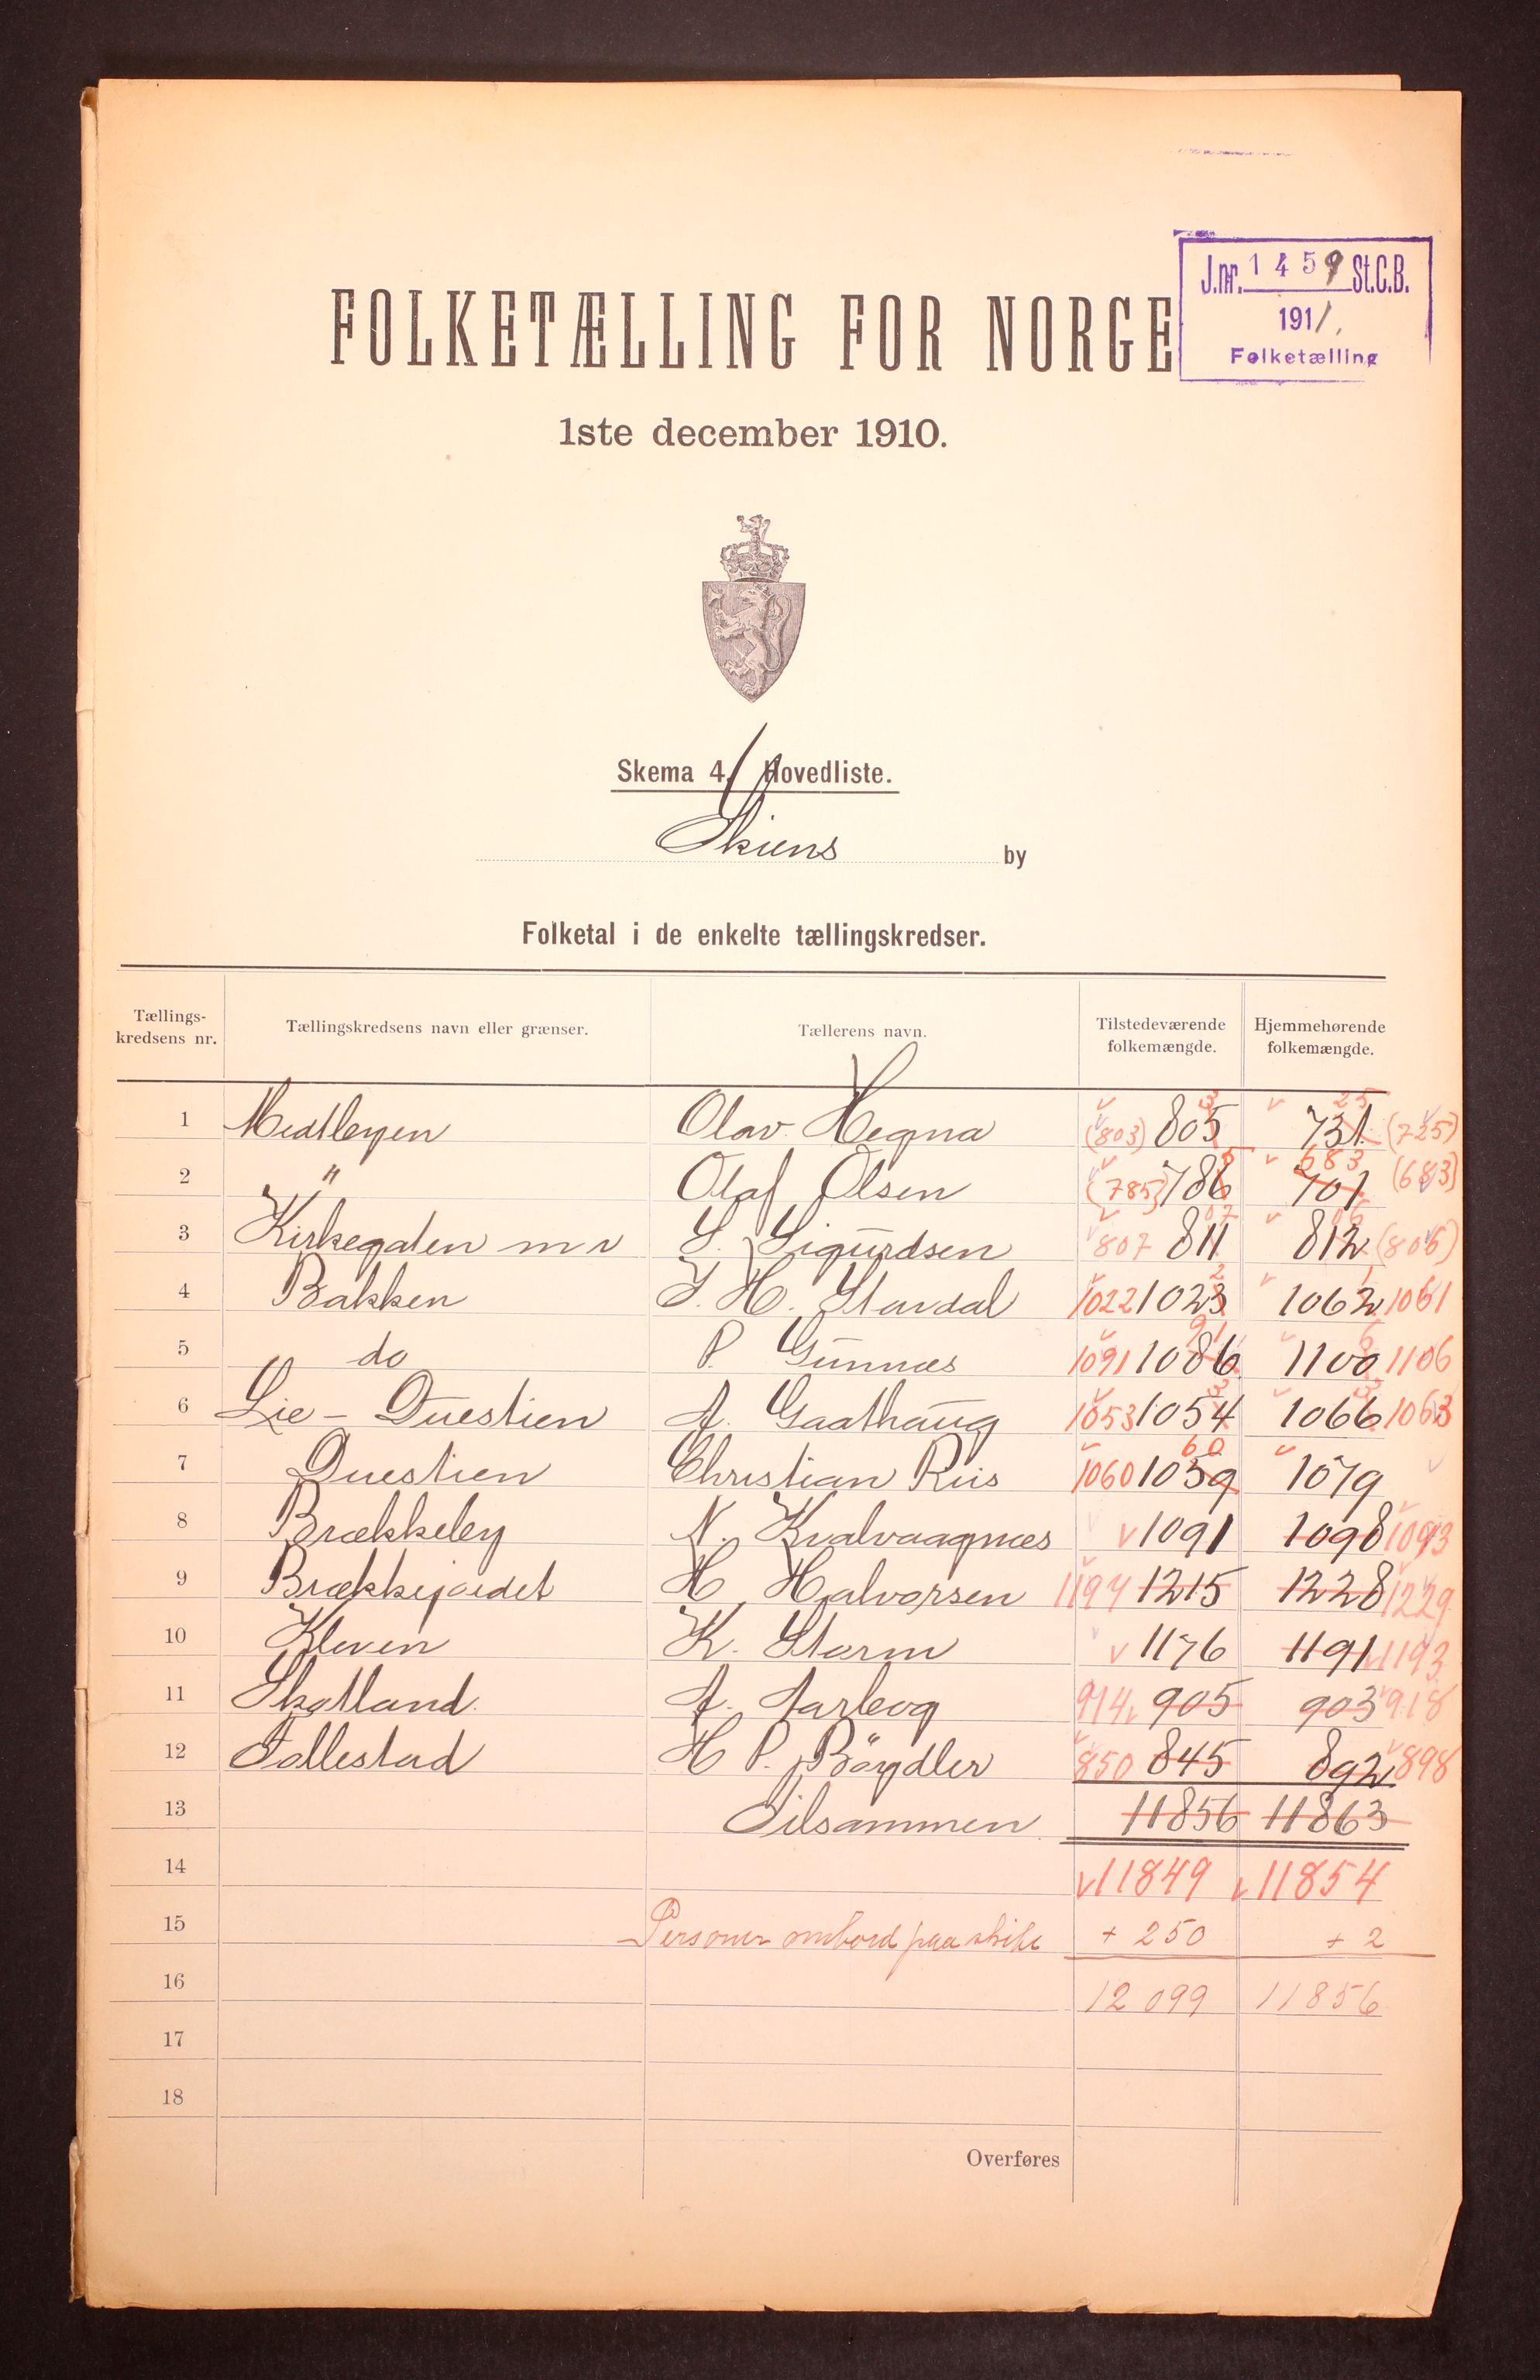 J.nr. 1459 St.C.B.
1911.
Folketælling
FOLKETÆLLING FOR NORGE
1ste december 1910.
Skema 4. Hovedliste.
Skiens by
Folketal i de enkelte tællingskredser.
Tællings-kredsens nr. Tællingskredsens navn eller grænser. Tællerens navn. Tilstedeværende folkemængde. Hjemmehørende folkemængde.
1 Medlbyen Olav Hegna (803) 805 3 731 25 (725)
2 " Olaf Olsen (785) 786 5 701 683 (683)
3 Kirkegaten m v S. Sigurdsen 807 811 07 812 06 (806)
4 Bakken H. Stavdal 1022 1023 2 1062 1 1061
5 do P. Gunnæs 1091 1086 91 1100 6 1106
6 Lie - Duestien A. Gaathaug 1053 1054 3 1066 3 1063
7 Duestien Christian Riis 1060 1059 60 1079
8 Brækkeby N. Kvalvaagnæs 1091 1098 1093
9 Brækkejordet H. Halvorsen 1194 1215 1228 1229
10 Kleven K. Storm 1176 1191 1193
11 Skotland A. Aarbog 914 905 903 918
12 Follestad H P. 850 845 892 898
13 Tilsammen 11856 11863
14 11849 11854
15 Personer ombord paa skibe + 250 + 2
16 12 099 11856
17
18
Overføres